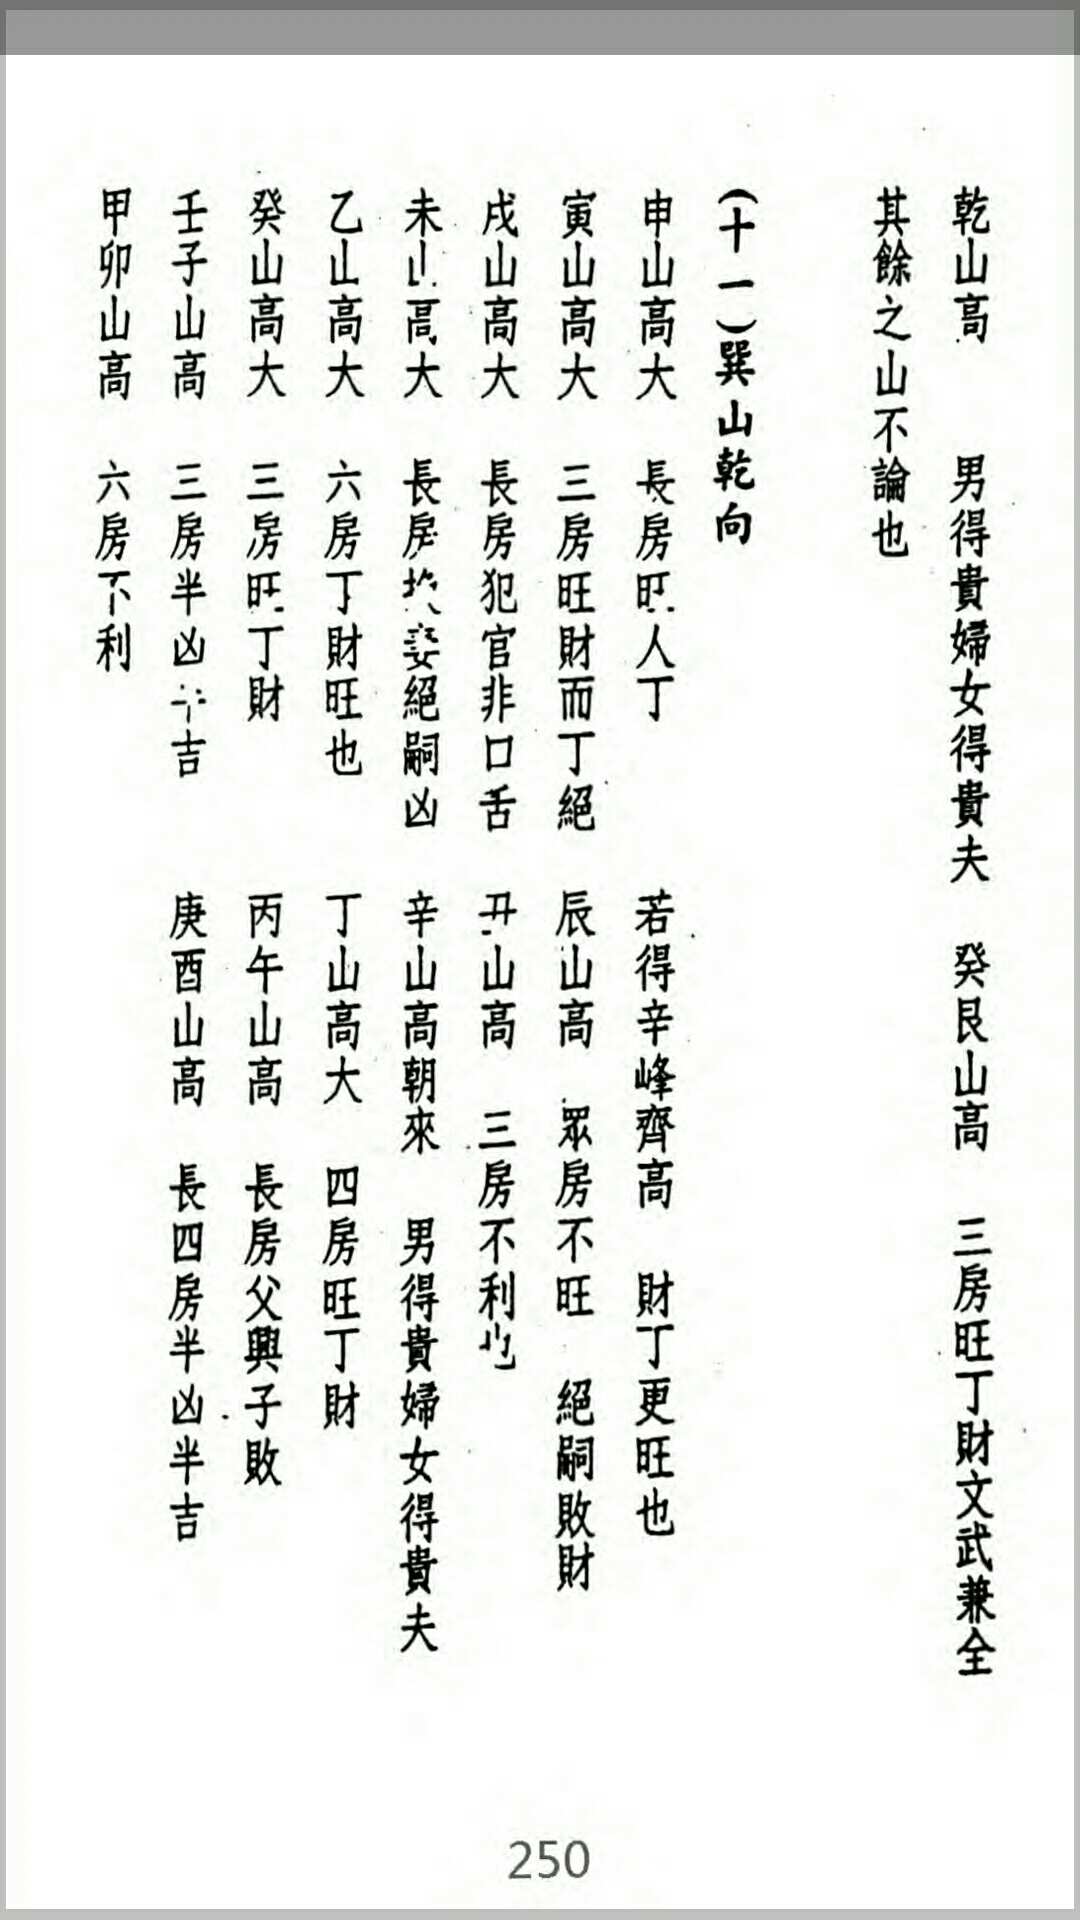 乾山高　男得貴婦女得貴夫　癸艮山高　三房旺丁財文武兼全
其餘之山不論也
（十一）巽山乾向
申山高大　長房旺人丁　若得辛峰齊高　財丁更旺也
寅山高大　三房旺財而丁絕　辰山高　眾房不旺　絕嗣敗財
戌山高大　長房犯官非口舌　丑山高　三房不利也
未山高大　長房絕嗣凶　辛山高朝來　男得貴婦女得貴夫
乙山高大　六房丁財旺也　丁山高大　四房旺丁財
癸山高大　三房旺丁財　丙午山高　長房父興子敗
壬子山高　三房半凶半吉　庚酉山高　長四房半凶半吉
甲卯山高　六房不利
250